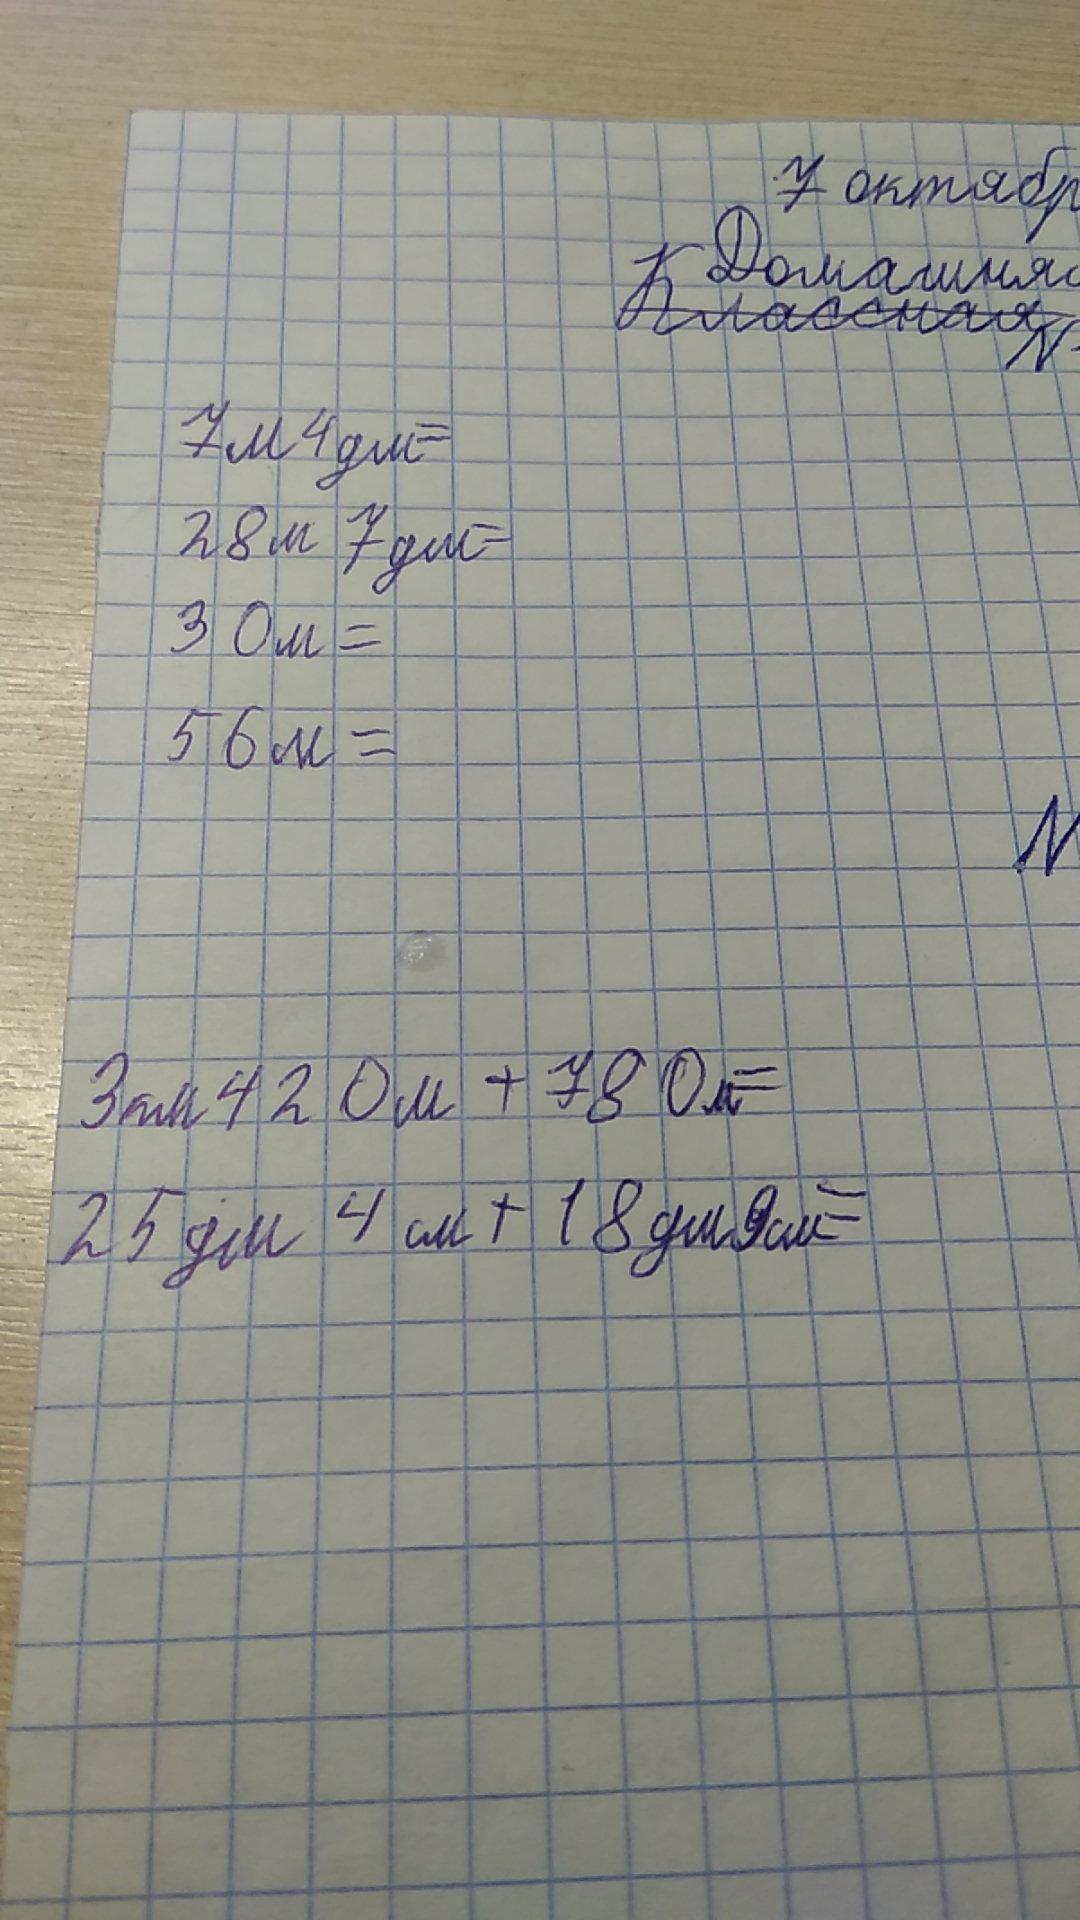 7 октябр
Домашняя
Классная
№
7м4дм=
28м 7дм=
30м=
56м=
№
3км420м + 780м=
25дм 4см+18дм9см=